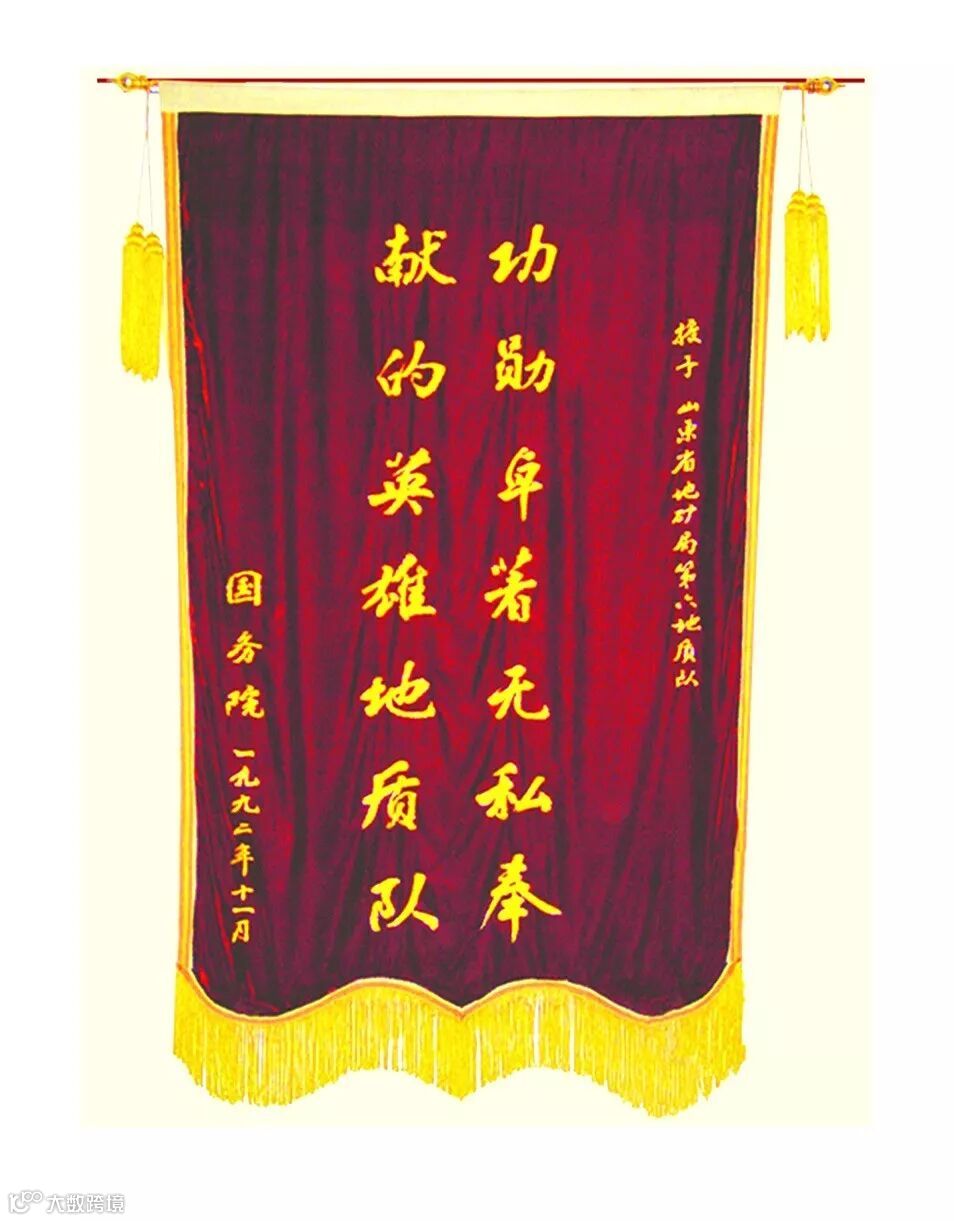 授予 山东省地矿局第六地质队
功勋卓著无私奉
献的英雄地质队
国务院 一九九二年十一月
大数跨境